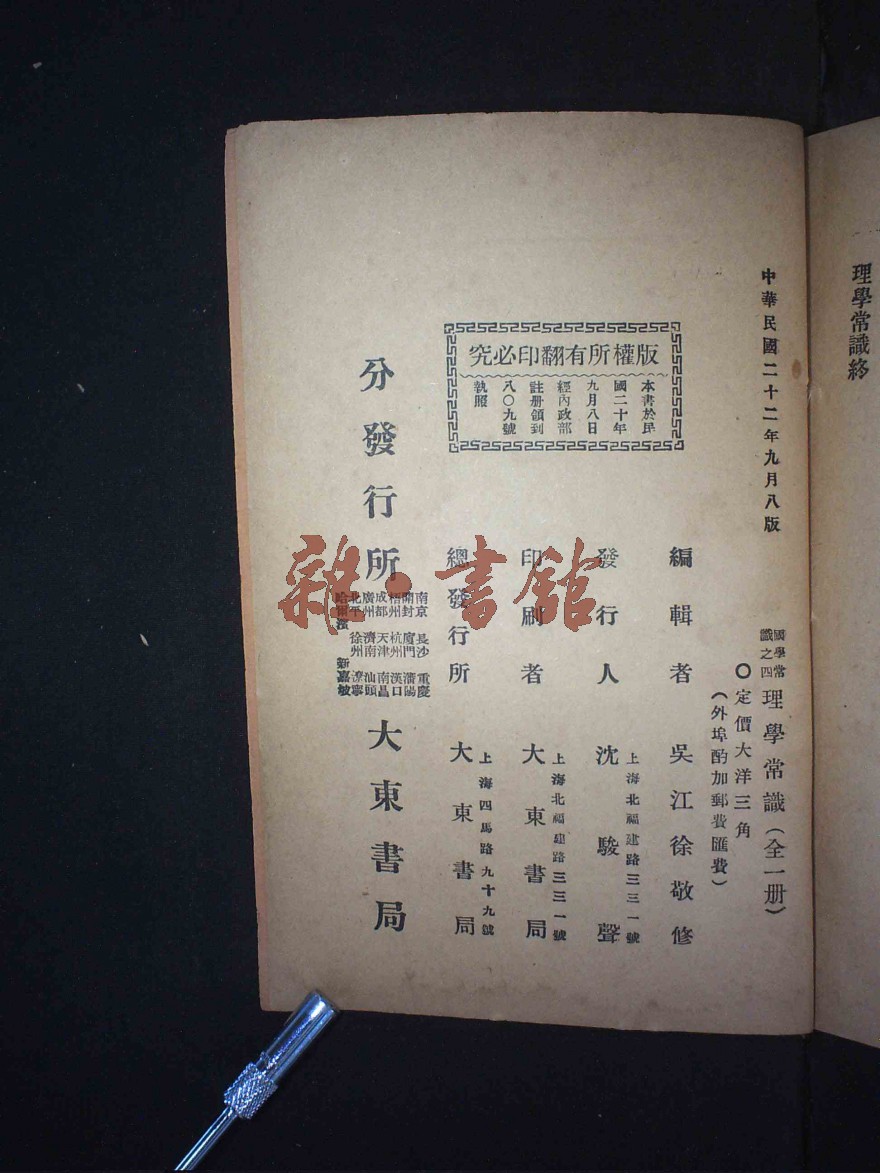 理學常識終
中華民國二十二年九月八版
國學常
識之四
理學常識（全一册）
〇定價大洋三角
（外埠酌加郵費匯費）
版權所有翻印必究
本書於民
國二十年
九月八日
經內政部
註册領到
八〇九號
執照
編輯者 吳江徐敬修
上海北福建路三三一號
發行人 沈駿聲
上海北福建路三三一號
印刷者 大東書局
上海四馬路九十九號
總發行所 大東書局
分發行所
南京 長沙 重慶
開封 廈門 瀋陽
梧州 杭州 漢口
成都 天津 南昌
廣州 濟南 汕頭
北平 徐州 遼寧
哈爾濱 新嘉敏
大東書局
雜·書館